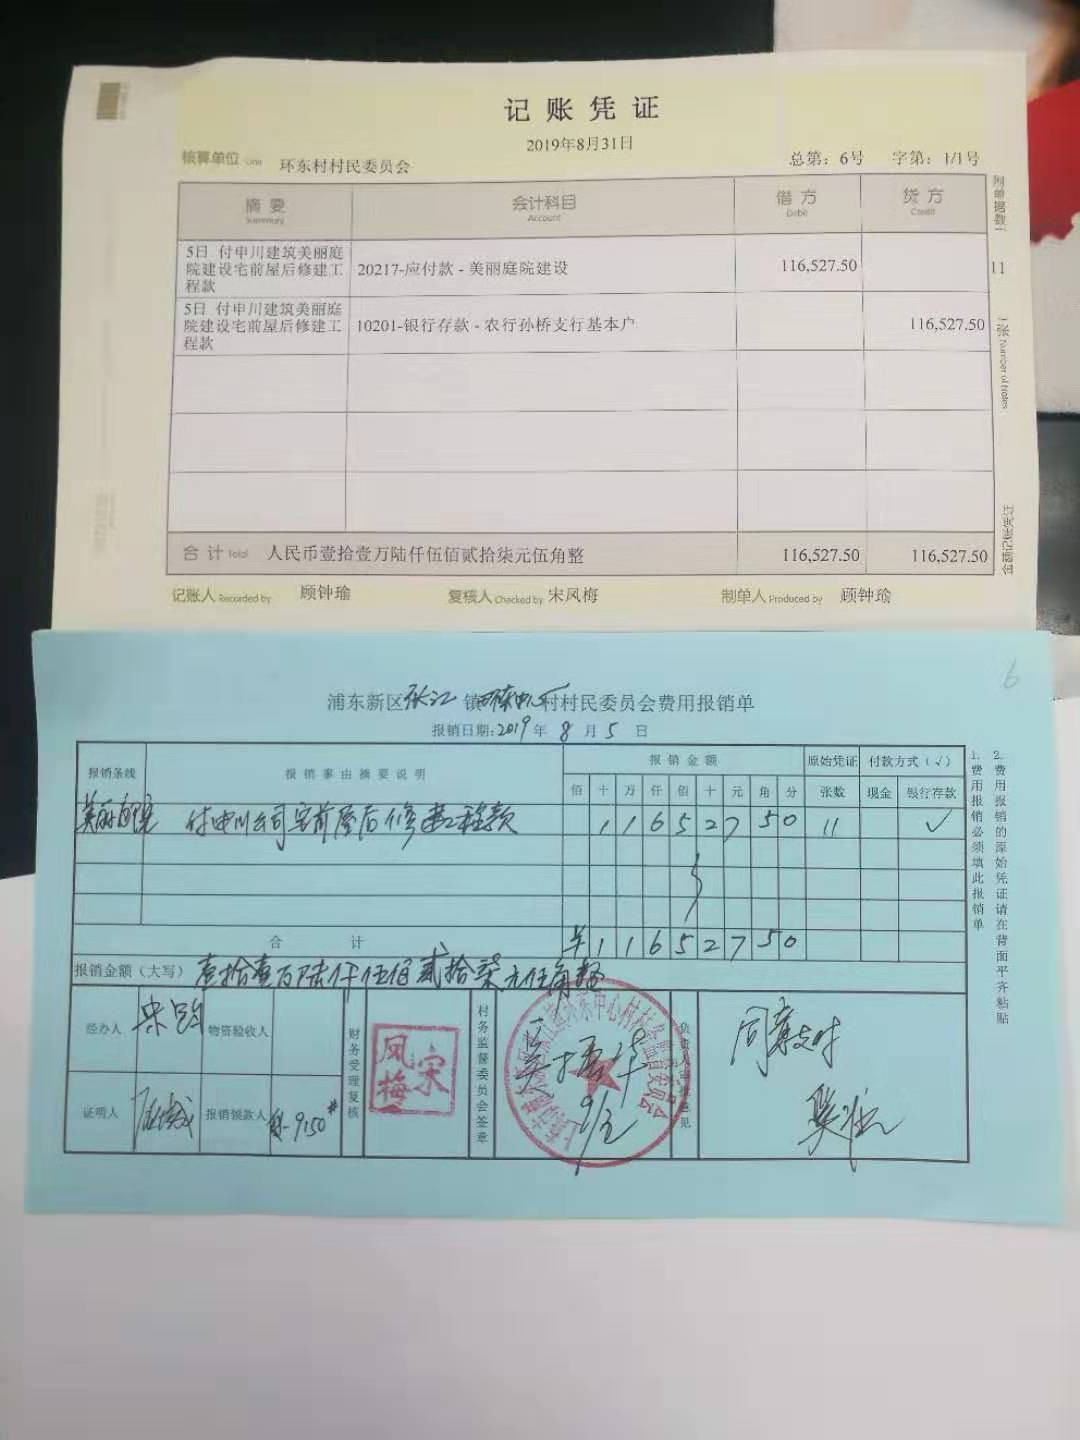 记账凭证
2019年8月31日
核算单位 Unit 环东村村民委员会 总第：6号 字第：1/1号
摘要 会计科目 借方 贷方
Summary Account Debit Credit
5日 付申川建筑美丽庭院建设宅前屋后修建工程款 20217-应付款 - 美丽庭院建设 116,527.50
5日 付申川建筑美丽庭院建设宅前屋后修建工程款 10201-银行存款 - 农行孙桥支行基本户 116,527.50
合计 Total 人民币壹拾壹万陆仟伍佰贰拾柒元伍角整 116,527.50 116,527.50
附单据数 11 张 Number of Notes
金额记账凭证
记账人 Recorded by 顾钟瑜 复核人 Checked by 宋凤梅 制单人 Produced by 顾钟瑜
6
浦东新区张江镇环东中心村村民委员会费用报销单
报销日期：2019年8月5日
报销条线 报销事由摘要说明 报销金额 原始凭证 付款方式（√）
佰 十 万 仟 佰 十 元 角 分 张数 现金 银行存款
美丽庭院 付申川公司宅前屋后修建工程款 1 1 6 5 2 7 5 0 11 √
合计 ¥ 1 1 6 5 2 7 5 0
报销金额（大写） 壹拾壹万陆仟伍佰贰拾柒元伍角整
经办人 物资验收人 财务受理复核 宋凤梅 村务监督委员会签章 负责人审批意见 同意支付
证明人 报销领款人
9/2
1.费用报销必须填此报销单
2.费用报销的原始凭证请在背面平齐粘贴